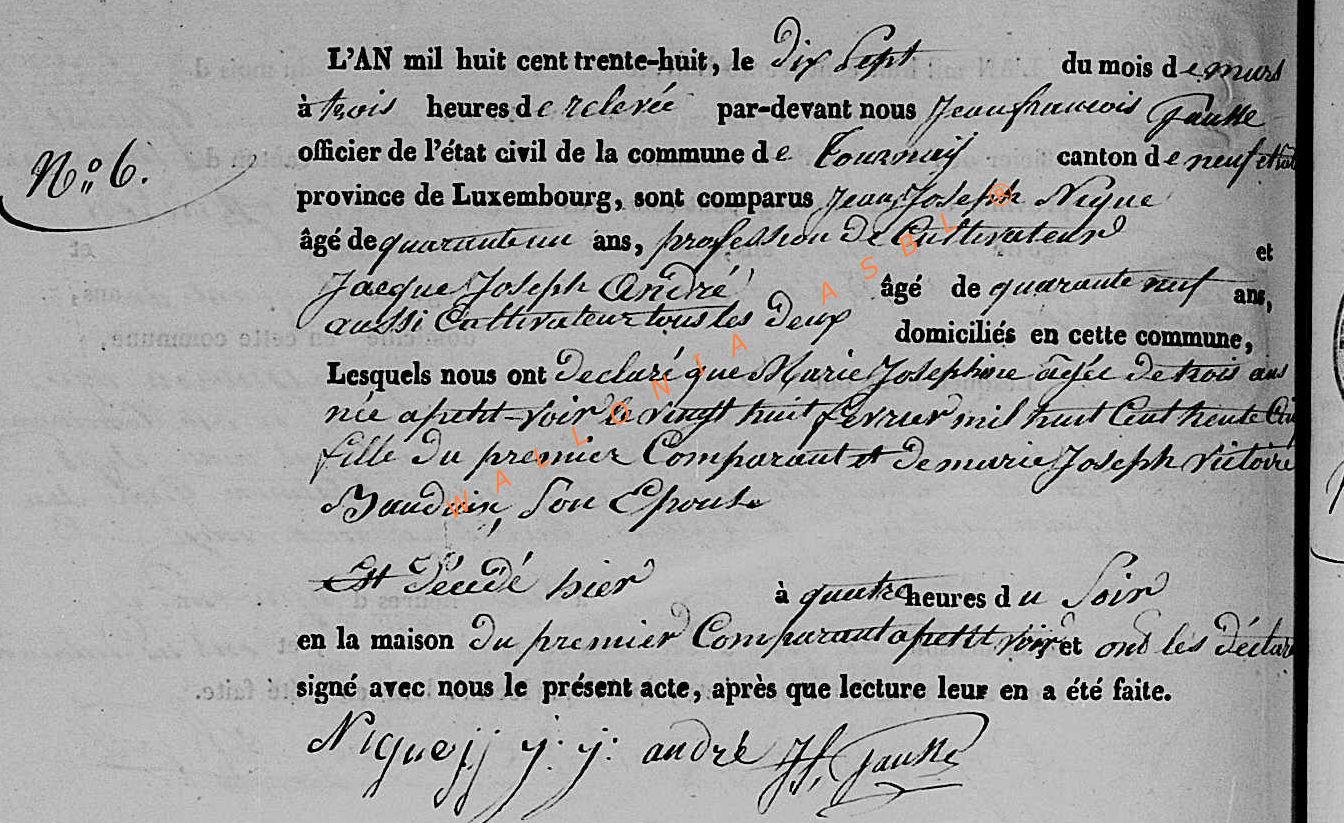 L'AN mil huit cent trente-huit, le dix Sept du mois de mars
à trois heures de relevée par-devant nous Jean francois
officier de l'état civil de la commune de Tournay canton de neufchat
N° 6.
province de Luxembourg, sont comparus Jean Joseph Nique
âgé de quarante un ans, profession de Cultivateur et
Jacque Joseph André âgé de quarante neuf ans,
aussi Cultivateur tous les deux domiciliés en cette commune,
Lesquels nous ont declaré que Marie Josephine agée de trois ans
née a petit-voir le vingt huit fevrier mil huit Cent trente Cin
fille du premier Comparant et de marie Joseph victoire
Baudoin, Son Epouse
Est décédé hier à quatre heures du Soir
en la maison du premier Comparant a petit voir et ont les déclar
signé avec nous le présent acte, après que lecture leur en a été faite.
Nique jj j. j. andré
WALLONIA ASBL ®